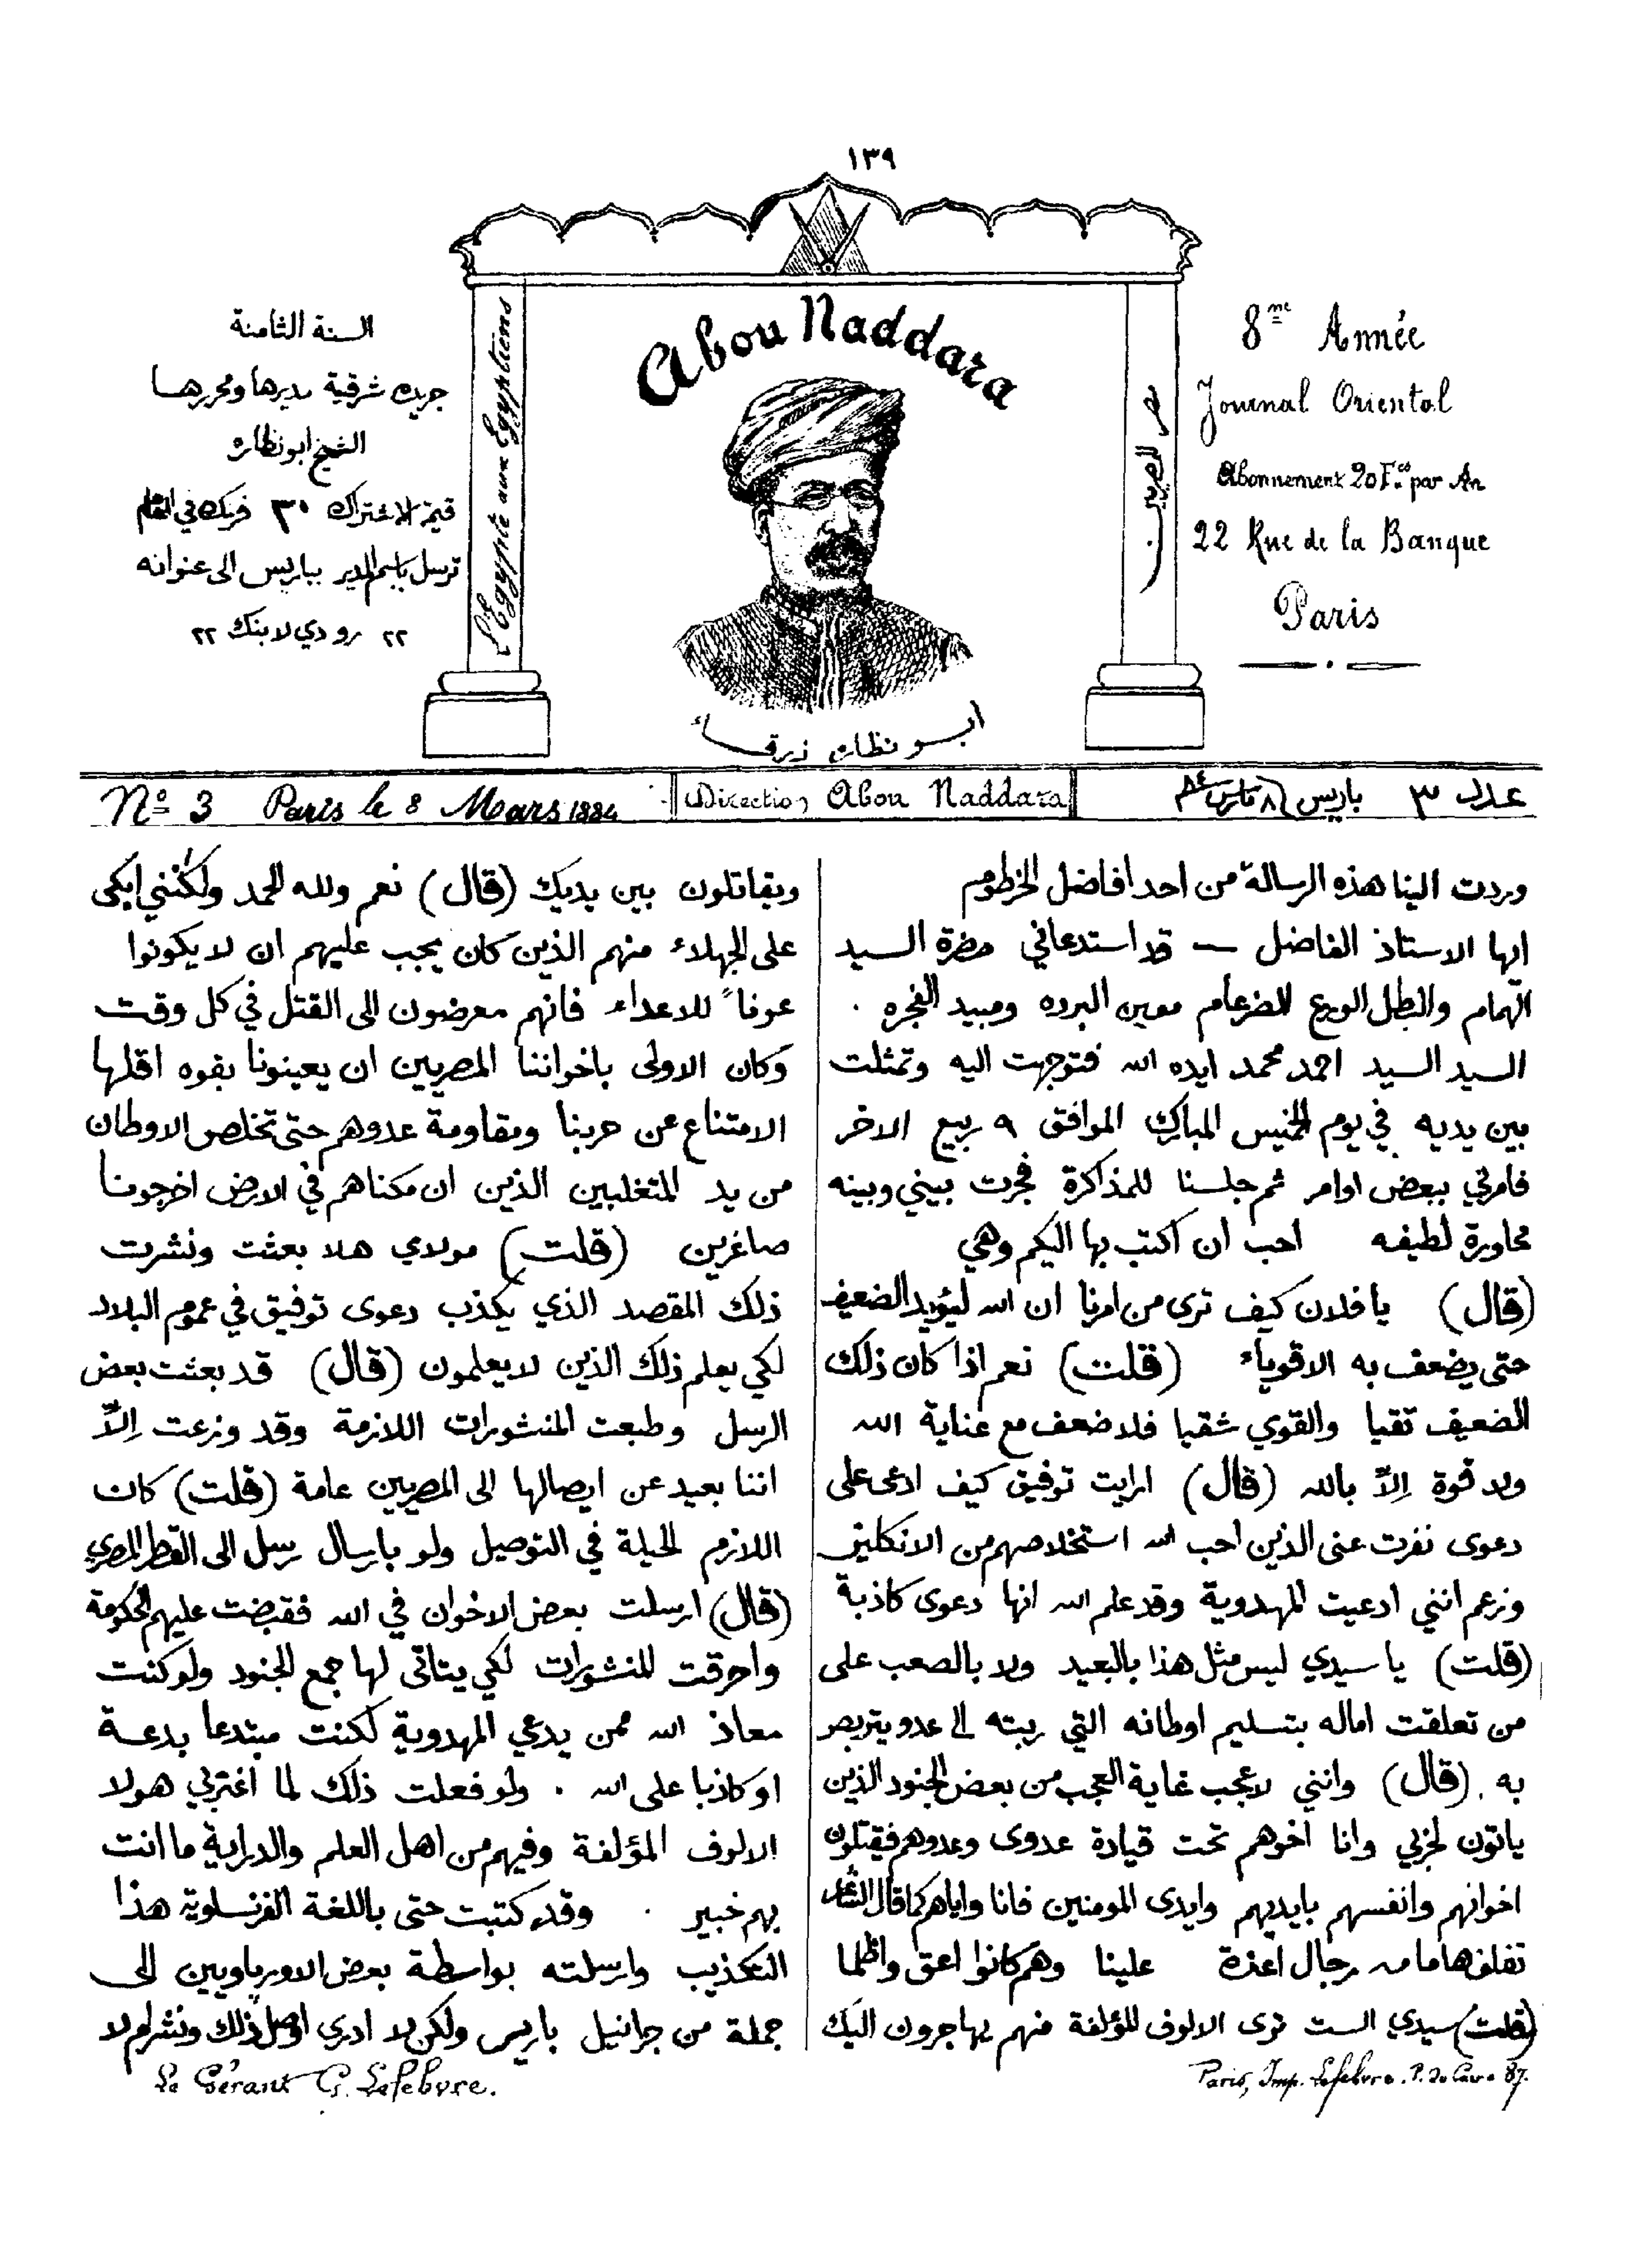 ١٣٩
السنة الثامنة
جريدة شرقية مديرها ومحررها
الشيخ ابو نظارة
قيمة الاشتراك ٣٠ فرنك في العام
ترسل باسم المدير بباريس الى عنوانه
٢٢ رو دي لا بنك ٢٢
L'Egypte aux Egyptiens
Abou Naddara
ابو نظاره زرقاء
مصر للمصريين
8me Année
Journal Oriental
Abonnement 20 Fcs par An
22 Rue de la Banque
Paris
No 3 Paris le 8 Mars 1884
Direction Abou Naddara
عدد ٣ باريس ٨ مارس ٨٤
وردت الينا هذه الرسالة من احد افاضل الخرطوم
ايها الاستاذ الفاضل — قد استدعاني حضرة السيد
الهمام والبطل الورع الضرغام معين البرره ومبيد الفجره .
السيد السيد احمد محمد ايده الله فتوجهت اليه وتمثلت
بين يديه في يوم الخميس المبارك الموافق ٩ ربيع الاخر
فامرني ببعض اوامر ثم جلسنا للمذاكرة فجرت بيني وبينه
محاورة لطيفه احب ان اكتب بها اليكم وهي
(قال) يا فلان كيف ترى من امرنا ان الله ليؤيد الضعيف
حتى يضعف به الاقوياء (قلت) نعم اذا كان ذلك
الضعيف تقيا والقوي شقيا فلا ضعف مع عناية الله
ولا قوة اِلاّ بالله (قال) ارايت توفيق كيف ادعى على
دعوى نفرت عنى الذين احب الله استخلاصهم من الانكليز
وزعم انني ادعيت المهدوية وقد علم الله انها دعوى كاذبة
(قلت) يا سيدي ليس مثل هذا بالبعيد ولا بالصعب على
من تعلقت اماله بتسليم اوطانه التي ربته الى عدو يتربص
به . (قال) وانني لاعجب غاية العجب من بعض الجنود الذين
ياتون لحربي وانا اخوهم تحت قيادة عدوى وعدوهم فيقتلون
اخوانهم وانفسهم بايديهم وايدى المومنين فانا واياهم كما قال الشاعر
تفلق هاما من رجال اعزة علينا وهم كانوا اعق واظلما
(قلت) سيدي الست ترى الالوف المؤلفة منهم يهاجرون اليك
ويقاتلون بين يديك (قال) نعم ولله الحمد ولكنني ابكى
على الجهلاء منهم الذين كان يجب عليهم ان لا يكونوا
عونا للاعداء فانهم معرضون الى القتل في كل وقت
وكان الاولى باخواننا المصريين ان يعينونا بقوه اقلها
الامتناع عن حربنا ومقاومة عدوهم حتى تخلص الاوطان
من يد المتغلبين الذين ان مكناهم في الارض اخرجونا
صاغرين (قلت) مولاي هلا بعثت ونشرت
ذلك المقصد الذي يكذب دعوى توفيق في عموم البلاد
لكي يعلم ذلك الذين لا يعلمون (قال) قد بعثت بعض
الرسل وطبعت المنشورات اللازمة وقد وزعت اِلاّ
اننا بعيد عن ايصالها الى المصريين عامة (قلت) كان
اللازم الحيلة في التوصيل ولو بارسال رسل الى القطر المصري
(قال) ارسلت بعض الاخوان في الله فقبضت عليهم الحكومة
واحرقت المنشورات لكي يتاتى لها جمع الجنود ولو كنت
معاذ الله ممن يدعي المهدوية لكنت مبتدعا بدعة
او كاذبا على الله . ولو فعلت ذلك لما اغتر بي هولا
الالوف المؤلفة وفيهم من اهل العلم والدراية ما انت
بهم خبير . وقد كتبت حتى باللغة الفرنساوية هذا
التكذيب وارسلته بواسطة بعض الاورباويين الى
جملة من جرانيل باريس ولكن لا ادري اوصل ذلك ونشر ام لا
Le Gérant G. Lefebvre.
Paris, Imp. Lefebvre. P. du Caire 87.